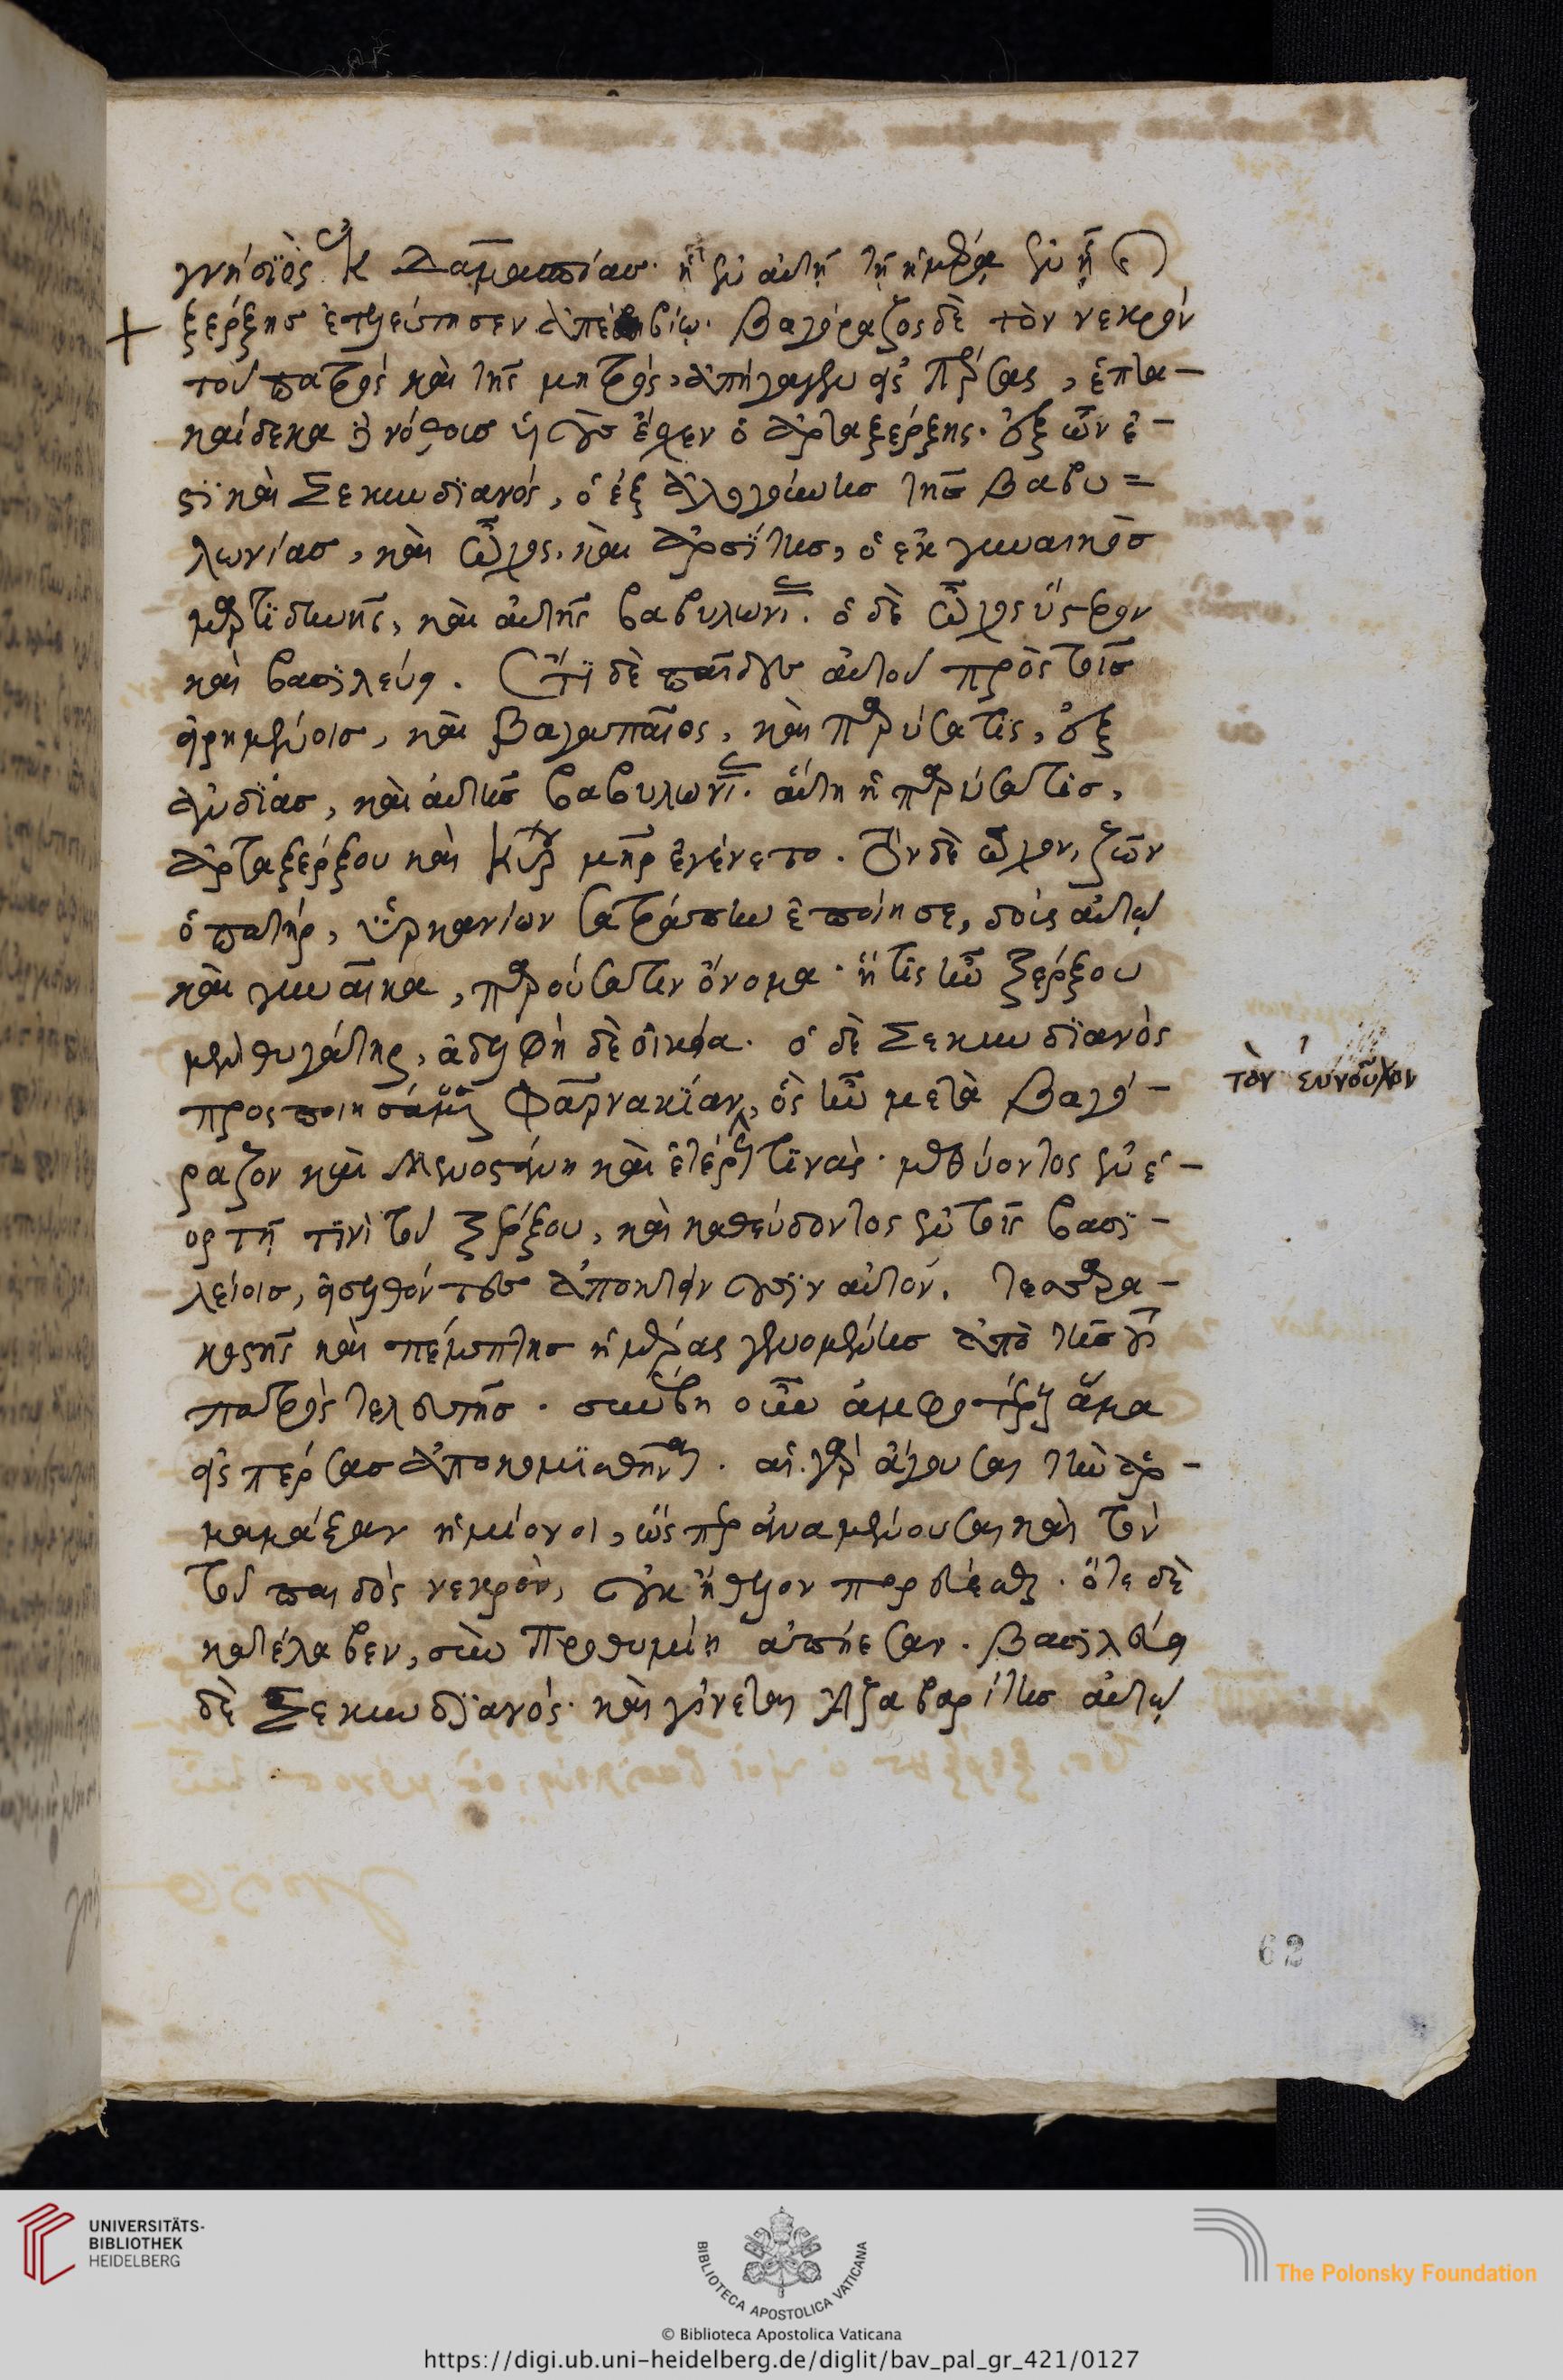 γνήσιος ἐκ Δαμασπίας· ἣ ἐν αὐτῇ τῇ ἡμέρᾳ ἐν ᾗ ὁ
ξέρξης ἐτελεύτησεν ἀπεβίω. Βαγόραζος δὲ τὸν νεκρὸν
τοῦ πατρὸς καὶ τῆς μητρὸς, ἀπήλαυνεν εἰς Πέρσας, ἑπτα-
καίδεκα δὲ νόθους υἱοὺς ἔσχεν ὁ ἀρταξέρξης. ἐξ ὧν ἐ-
στὶ καὶ Σεκυνδιανός, ὁ ἐξ ἀλογούνης τῆς Βαβυ=
λωνίας, καὶ ὦχος. καὶ ἀρσίτης, ὁ ἐκ γυναικὸς
μαρτιδηνῆς, καὶ αὐτῆς βαβυλωνί. ὁ δὲ ὦχος ὕστερον
καὶ βασιλεύει. ἔτι δὲ παῖδες αὐτοῦ πρὸς τοῖς
εἰρημένοις, καὶ Βαγαπαῖος, καὶ παρύσατις, ἐξ
ἀνδίας, καὶ αὐτῆς βαβυλωνί. αὕτη ἡ παρύσατις,
ἀρταξέρξου καὶ κύρου μήτηρ ἐγένετο. τὸν δὲ ὦχον, ζῶν
ὁ πατὴρ, ὑρκανίων σατράπην ἐποίησε, δοὺς αὐτῷ
καὶ γυναῖκα, παρούσατιν ὄνομα· ἥτις ἦν ξέρξου
μὲν θυγάτηρ, ἀδελφὴ δὲ οἰκεία. ὁ δὲ Σεκυνδιανὸς
προσποιησάμενος Φαρνακίαν, ὃς ἦν μετὰ Βαγό-
ραζον καὶ Μενοστάνη καὶ ἑτέρους τινὰς. μεθύοντος ἐν ἑ-
ορτῇ τινὶ τοῦ ξέρξου, καὶ καθεύδοντος ἐν τοῖς βασι-
λείοις, εἰσελθόντες ἀποκτείνουσιν αὐτόν. τεσσαρα-
κοστῆς καὶ πέμπτης ἡμέρας γενομένης ἀπὸ τῆς τοῦ
πατρὸς τελευτῆς. συνέβη οὖν ἀμφοτέρους ἅμα
εἰς πέρσας ἀποκομισθῆναι. αἱ γὰρ ἄγουσαι τὴν ἁρ-
μάμαξαν ἡμίονοι, ὥσπερ ἀναμένουσαι καὶ τὸν
τοῦ παιδὸς νεκρὸν, οὐκ ἤθελον πορεύεσθαι. ὅτε δὲ
κατέλαβεν, σὺν προθυμίῃ ἀπῄεσαν. Βασιλεύει
δὲ Σεκυνδιανός. καὶ γίνεται Ἀζαβαρίτης αὐτῷ
τὸν εὐνοῦχον
62
UNIVERSITÄTS-
BIBLIOTHEK
HEIDELBERG
BIBLIOTECA APOSTOLICA VATICANA
The Polonsky Foundation
© Biblioteca Apostolica Vaticana
https://digi.ub.uni-heidelberg.de/diglit/bav_pal_gr_421/0127